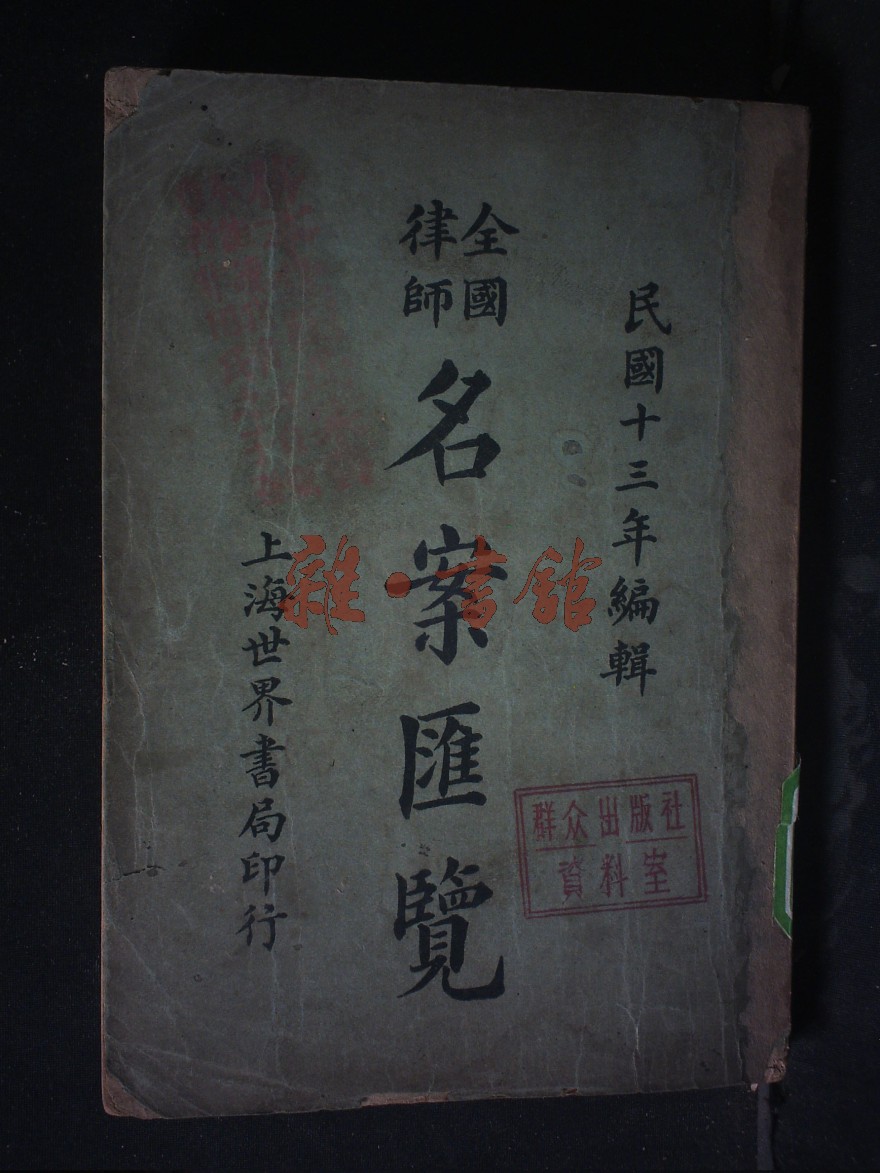 民國十三年編輯
全國
律師
名案匯覽
上海世界書局印行
群众出版社
資料室
雜·書館